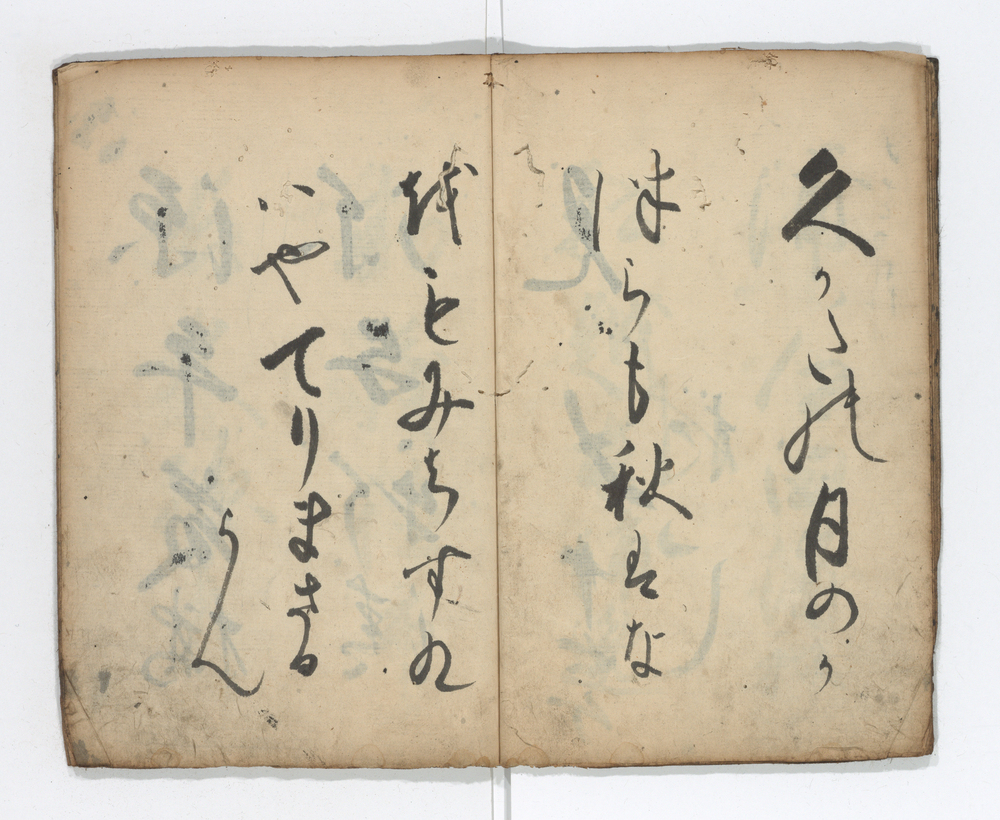 久かたの月のか
つらも秋はな
をもみちすれ
はやてりまさる
らん